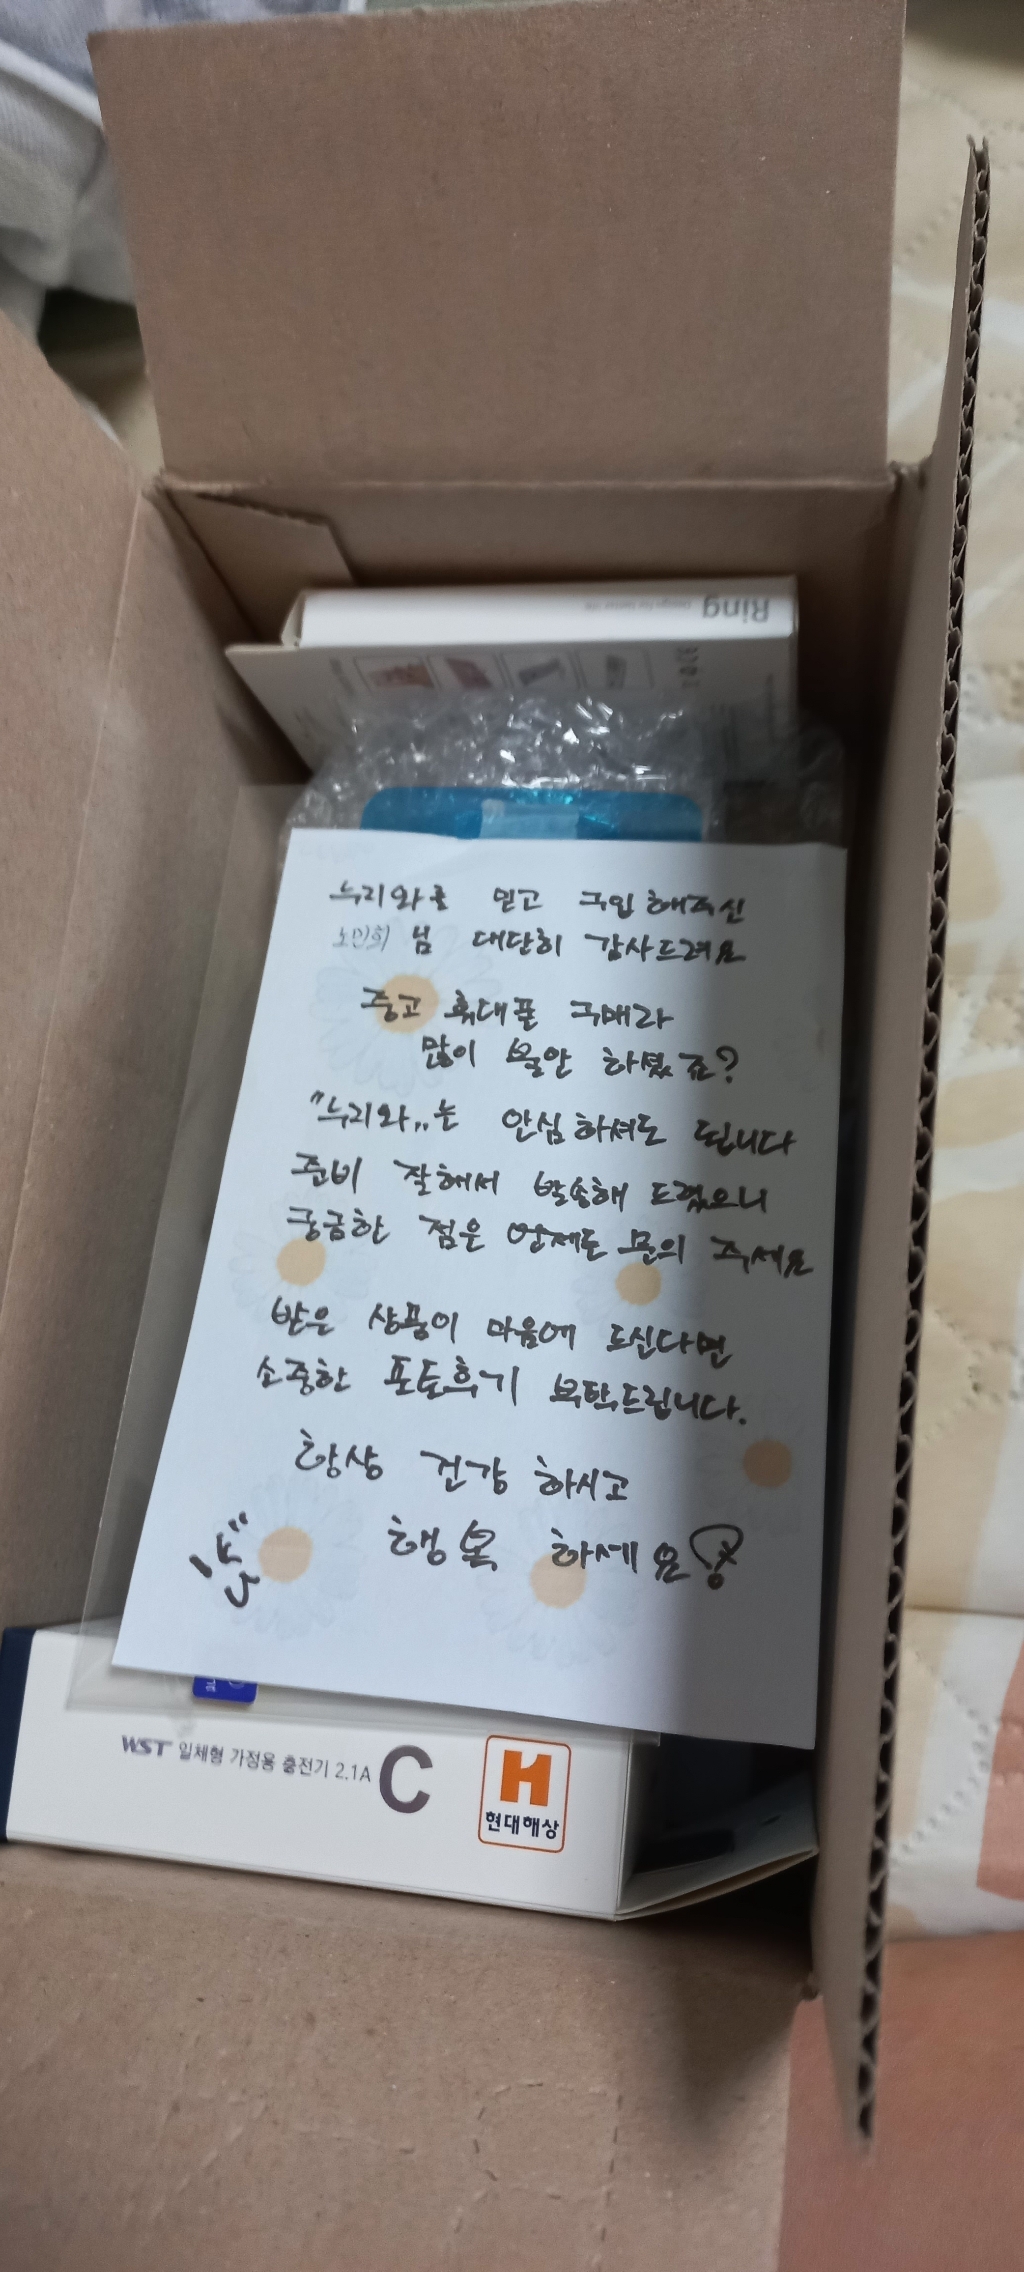 Ring
누리와를 믿고 구입해주신
노민희 님 대단히 감사드려요
중고 휴대폰 구매라
많이 불안 하셨죠?
"누리와"는 안심하셔도 됩니다
준비 잘해서 발송해 드렸으니
궁금한 점은 언제든 문의 주세요
받은 상품이 마음에 드신다면
소중한 포토후기 부탁드립니다.
항상 건강 하시고
행복 하세요
WST 일체형 가정용 충전기 2.1A C
H
현대해상